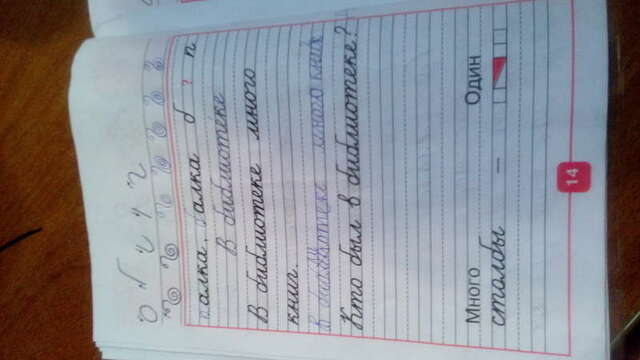 палка, балка б ? п
В библиотеке
В библиотеке много
книг.
В библиотеке много книг
Кто был в библиотеке?
Много Один
столбы —
14